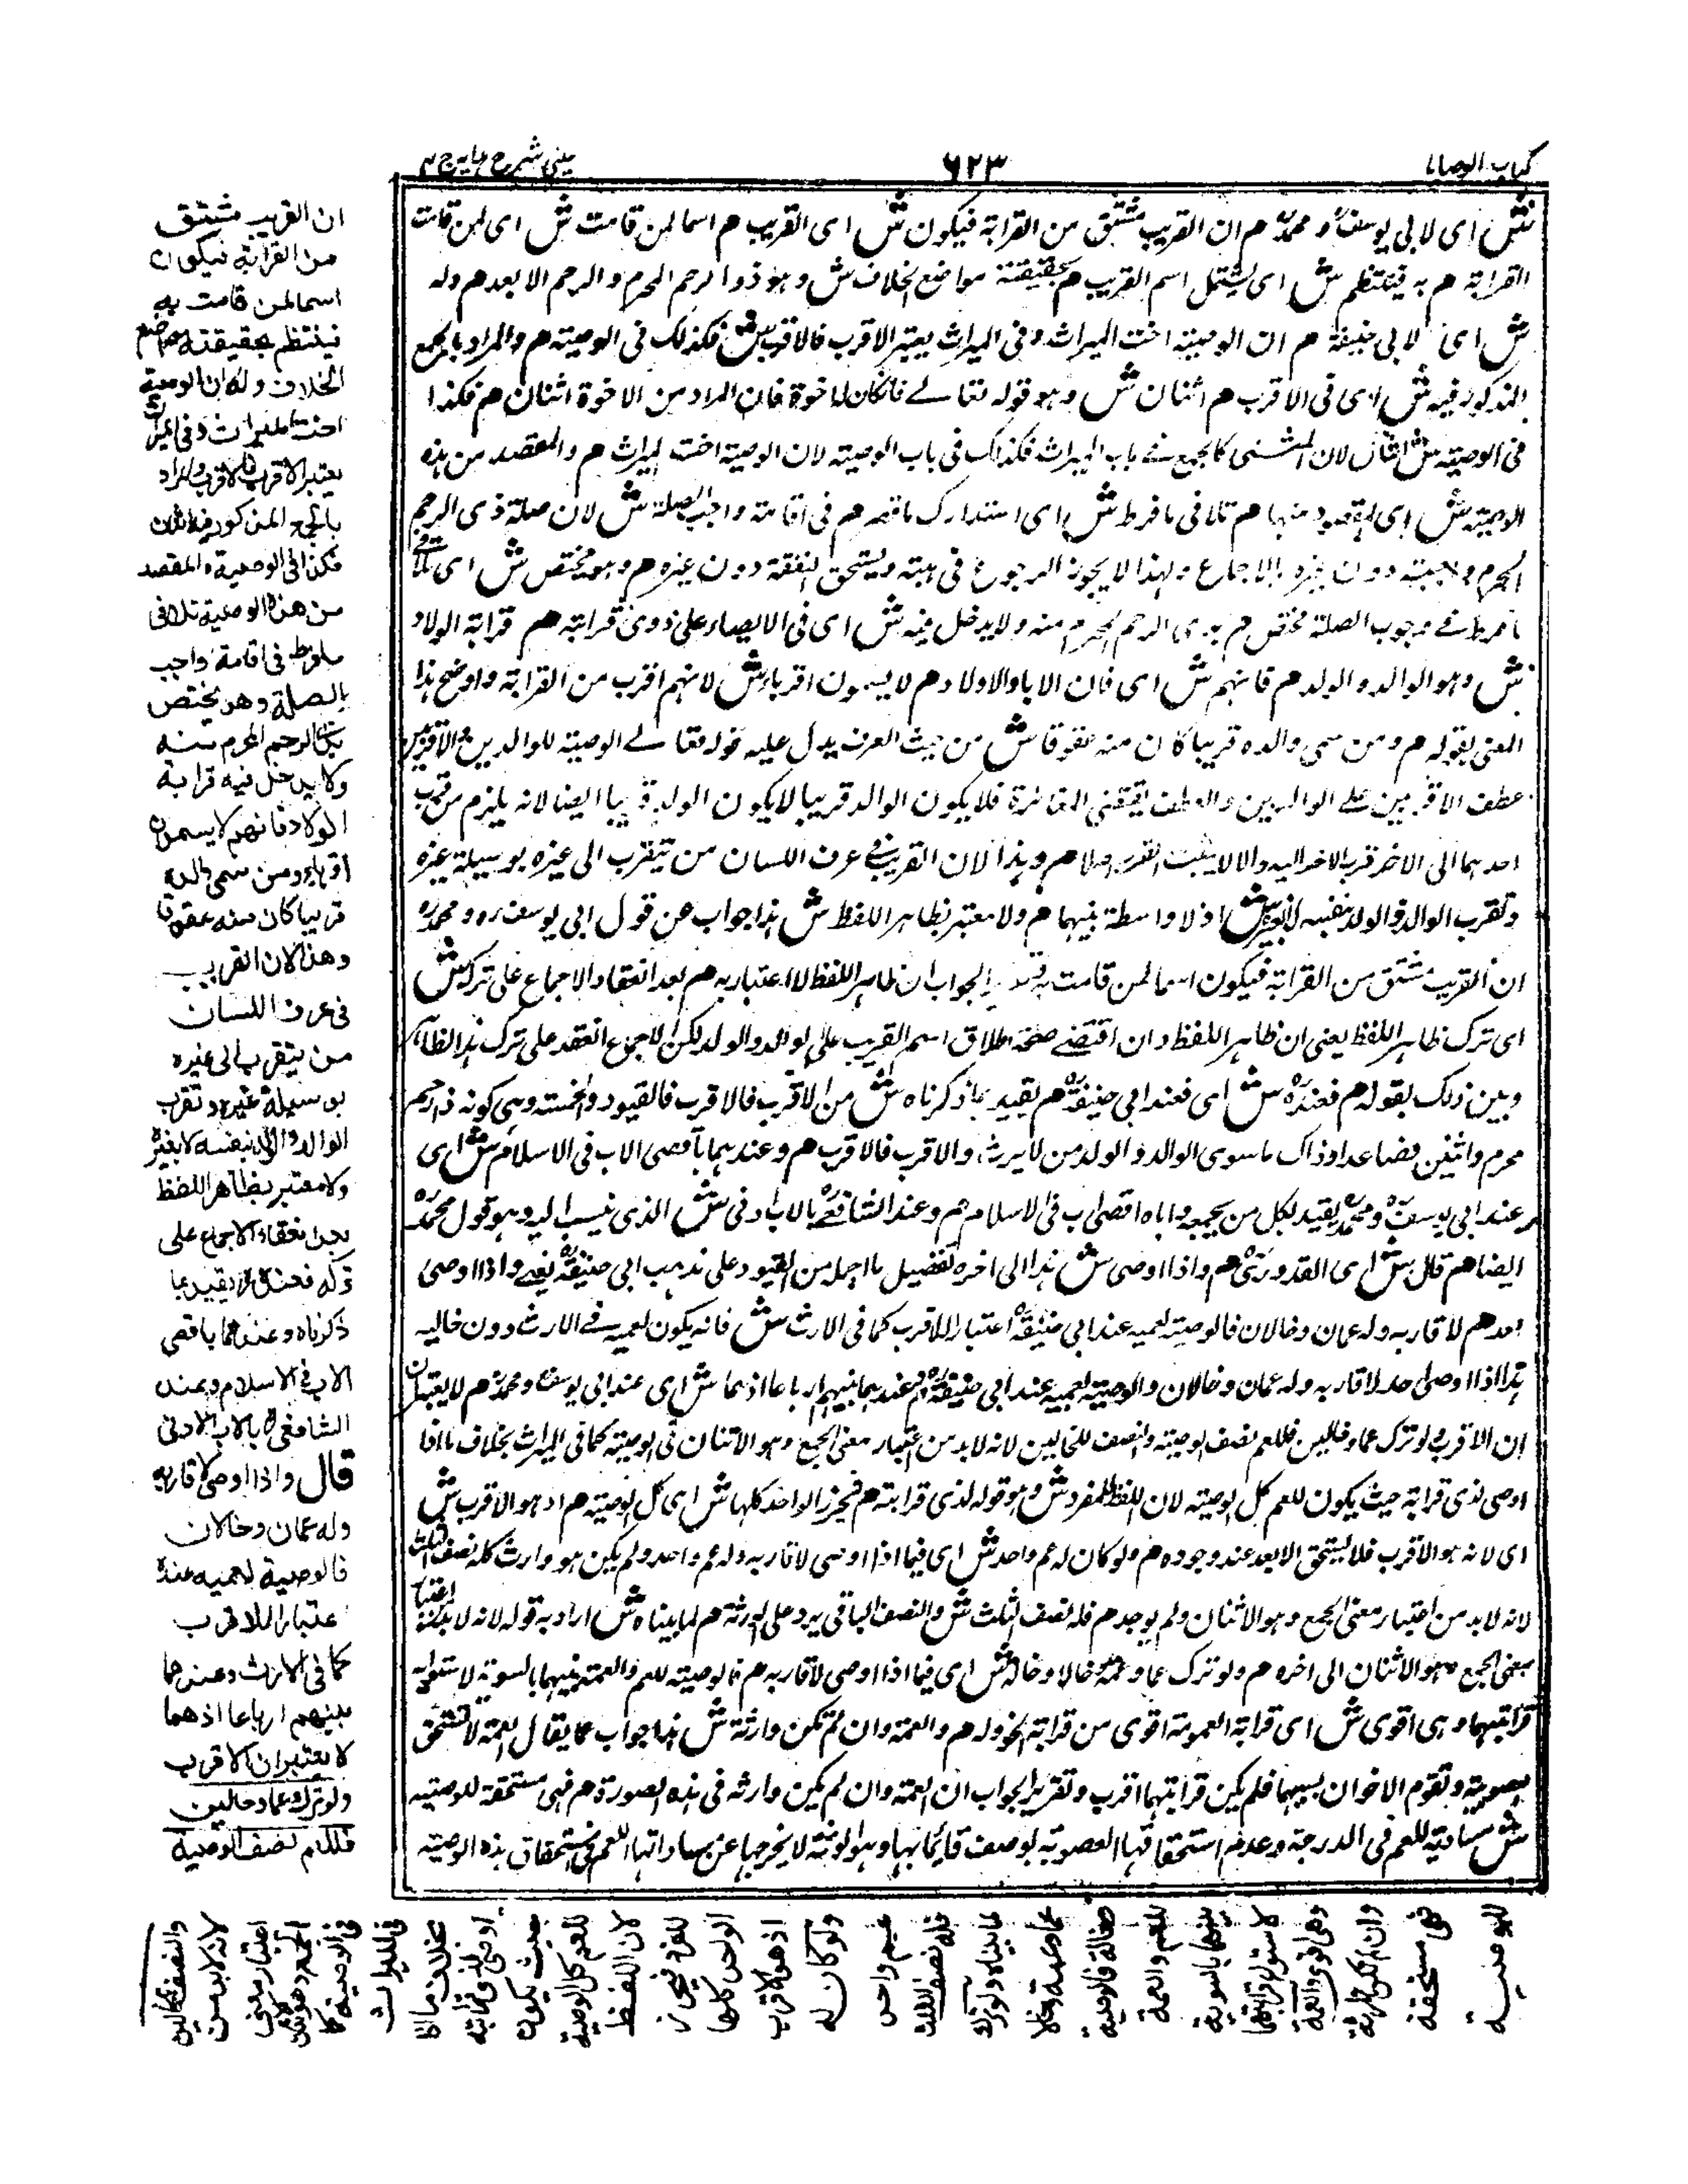 كتاب الوصايا
٦٢٣
عيني شرح هدايه ج ٤
ش اى لابى يوسف و محمد م ان القريب مشتق من القرابة فيكون ش اى القريب م اسما لمن قامت ش اى لمن قامت
القرابة م به فينتظم ش اى يشتمل اسم القريب م بحقيقته مواضع الخلاف ش و هو ذو الرحم المحرم و الرحم الابعد م وله
ش اى لابى حنيفة م ان الوصية اخت الميراث و فى الميراث يعتبر الاقرب فالاقرب ش فكذلك فى الوصية م والمراد بالجمع
المذكور فيه ش اى فى الاقرب م اثنان ش وهو قوله تعالے فان كان له اخوة فان المراد من الاخوة اثنان م فكذا
فى الوصية ش اثنان لان المثنى كالجمع فے باب الميراث فكذلك فى باب الوصية لان الوصية اخت الميراث م والمقصد من هذه
الوصية ش اى المقصود منها م تلافى ما فرط ش اى استدراك ما قصر م فى اقامة واجب الصلة ش لان صلة ذى الرحم
المحرم واجبة دون غيره بالاجماع ولهذا لا يجوز الرجوع فى هبته ويستحق النفقة دون غيره م وهو مختص ش اى تلافى
ما فرط فے وجوب الصلة مختص م بذى الرحم المحرم منه ولا يدخل فيه ش اى فى الايصاء على ذوى قرابته م قرابة الولاد
ش وهو الوالد و الولد م فانهم ش اى فان الاباء والاولاد م لا يسمون اقرباء ش لانهم اقرب من القرابة واوضح هذا
المعنى بقوله م ومن سمى والده قريبا كان منه عقوقا ش من حيث العرف يدل عليه قوله تعالے الوصية للوالدين والاقربين
عطف الاقربين علے الوالدين والعطف يقتضى المغائرة فلا يكون الوالد قريبا لا يكون الولد قريبا ايضا لانه يلزم من قرب
احدهما الى الاخر قرب الاخر اليه والا لا يثبت القرب اصلا م وهذا لان القريب فے عرف اللسان من يتقرب الى غيره بوسيلة غيره
وتقرب الوالد والولد بنفسه لا بغيره ش اذ لا واسطة بينهما م ولا معتبر بظاهر اللفظ ش هذا جواب عن قول ابى يوسف ره و محمد ره
ان القريب مشتق من القرابة فيكون اسما لمن قامت به الجواب ان ظاهر اللفظ لا اعتبار به م بعد انعقاد الاجماع على تركه ش
اى ترك ظاهر اللفظ يعنى ان ظاهر اللفظ و ان اقتضے صحة اطلاق اسم القريب على الوالد والولد لكن الاجماع انعقد على ترك هذا الظاهر
وبين ذلك بقوله م فعنده ش اى فعند ابى حنيفة م يقيد بما ذكرناه ش من الاقرب فالاقرب فالقيود الخمسة وهى كونه ذا رحم
محرم واثنين فصاعدا وذاك ما سوى الوالد و الولد ممن لا يرث والاقرب فالاقرب م وعندهما باقصى الاب فى الاسلام ش اى
عند ابى يوسف و محمد يقيد بكل من يجمعه واباه اقصى اب فى الاسلام م وعند الشافعے بالاب الادنى ش الذى ينسب اليه وهو قول محمد
ايضا م قال ش اى القدورى م واذا اوصى ش هذا الى اخره تفصيل ما اجمله من القيود على مذهب ابى حنيفة يعنے واذا اوصى
احد م لاقاربه وله عمان وخالان فالوصية لعميه عند ابى حنيفة اعتبارا للاقرب كما فى الارث ش فانه يكون لعميه فے الارث دون خاليه
هذا اذا اوصى احد لاقاربه وله عمان وخالان والوصية لعميه عند ابى حنيفة م وعندهما بينهم ارباعا اذ هما ش اى عند ابى يوسف و محمد م لا يعتبران
ان الاقرب م ولو ترك عما وخالين فللعم نصف الوصية والنصف للخالين لانه لا بد من اعتبار معنى الجمع وهو الاثنان فى الوصية كما فى الميراث بخلاف ما اذا
اوصى لذى قرابة حيث يكون للعم كل الوصية لان اللفظ للمفرد ش وهو قوله لذى قرابته م فيحرز الواحد كلها ش اى كل الوصية م اذ هو الاقرب ش
اى لانه هو الاقرب فلا يستحق الابعد عند وجوده م ولو كان له عم واحد ش اى فيما اذا اوصى لاقاربه وله عم واحد ولم يكن هو وارث كله نصف الثلث
لانه لا بد من اعتبار معنى الجمع وهو الاثنان ولم يوجد م فله نصف الثلث ش والنصف الباقى يرد على الورثة م لما بيناه ش اراد به قوله لانه لا بد من اعتبار
معنى الجمع وهو الاثنان الى اخره م ولو ترك عما وعمة وخالا وخالة ش اى فيما اذا اوصى لاقاربه م فالوصية للعم والعمة بينهما بالسوية لاستواء
قرابتهما وهى اقوى ش اى قرابة العمومة اقوى من قرابة الخؤولة م والعمة وان لم تكن وارثة ش هذا جواب عما يقال العمة لا تستحق
بعصوبة وتقوم الاخوان بسببهما فلم يكن قرابتهما اقرب وتقرير الجواب ان العمة وان لم يكن وارثه فى هذه الصورة م فهى مستحقة للوصية
ش مساوية للعم فى الدرجة وعدم استحقاقها العصوبة لوصف قائم بها وهو الانوثة لا يخرجها عن مساواتها للعم فى استحقاق هذه الوصية
ان القريب مشتق
من القرابة فيكون
اسما لمن قامت به
فينتظم بحقيقته مواضع
الخلاف وله ان الوصية
اخت الميراث وفى الميراث
يعتبر الاقرب فالاقرب والمراد
بالجمع المذكور فيه اثنان
فكذا فى الوصية والمقصد
من هذه الوصية تلافى
ما فرط فى اقامة واجب
الصلة وهو يختص
بذى الرحم المحرم منه
ولا يدخل فيه قرابة
الولاد فانهم لا يسمون
اقرباء ومن سمى والده
قريبا كان منه عقوقا
وهذا لان القريب
فى عرف اللسان
من يتقرب الى غيره
بوسيلة غيره وتقرب
الوالد والولد بنفسه لا بغيره
ولا معتبر بظاهر اللفظ
بعد انعقاد الاجماع على
تركه فعنده يقيد بما
ذكرناه وعندهما باقصى
الاب فى الاسلام وعند
الشافعى بالاب الادنى
قال واذا اوصى لاقاربه
وله عمان وخالان
فالوصية لعميه عنده
اعتبارا للاقرب
كما فى الارث وعندهما
بينهم ارباعا اذ هما
لا يعتبران الاقرب
ولو ترك عما وخالين
فللعم نصف الوصية
والنصف للخالين
لانه لا بد من
اعتبار معنى
الجمع وهو الاثنان
فى الوصية كما
فى الميراث
بخلاف ما اذا
اوصى لذى قرابته
حيث يكون
للعم كل الوصية
لان اللفظ
للفرد فيحرز
الواحد كلها
اذ هو الاقرب
ولو كان له
عم واحد
فله نصف الثلث
لما بيناه ولو ترك
عما وعمة وخالا
وخالة فالوصية
للعم والعمة
بينهما بالسوية
لاستواء قرابتهما
وهى اقوى والعمة
وان لم تكن وارثة
فهى مستحقة
للوصية